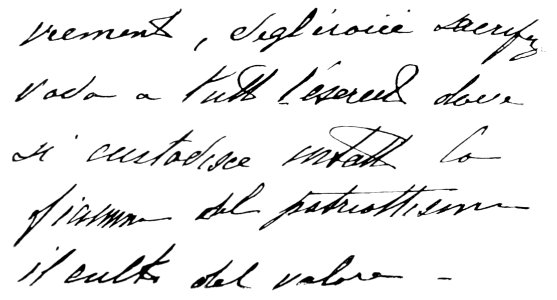 vrement, degl'eroici sacrifizi
vada a tutt l'esercito dove
si custodisce intatta la
fiamma del patriottismo
il culto del valore -